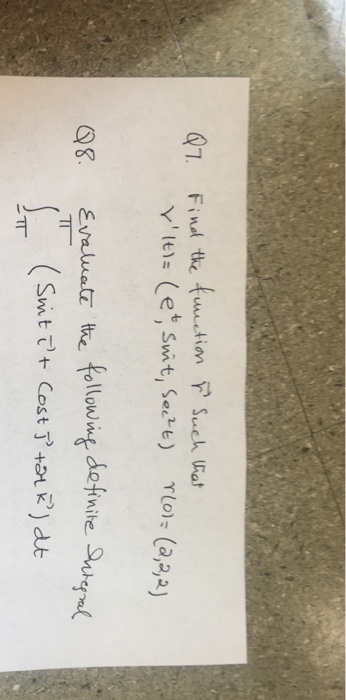 Q7. Find the function r⃗ such that
r'(t) = (e^t, Sint, Sec²t) r(0) = (2,2,2)
Q8. Evaluate the following definite Integral
∫_{-π}^{π} (Sint i⃗ + Cost j⃗ + 2t k⃗) dt